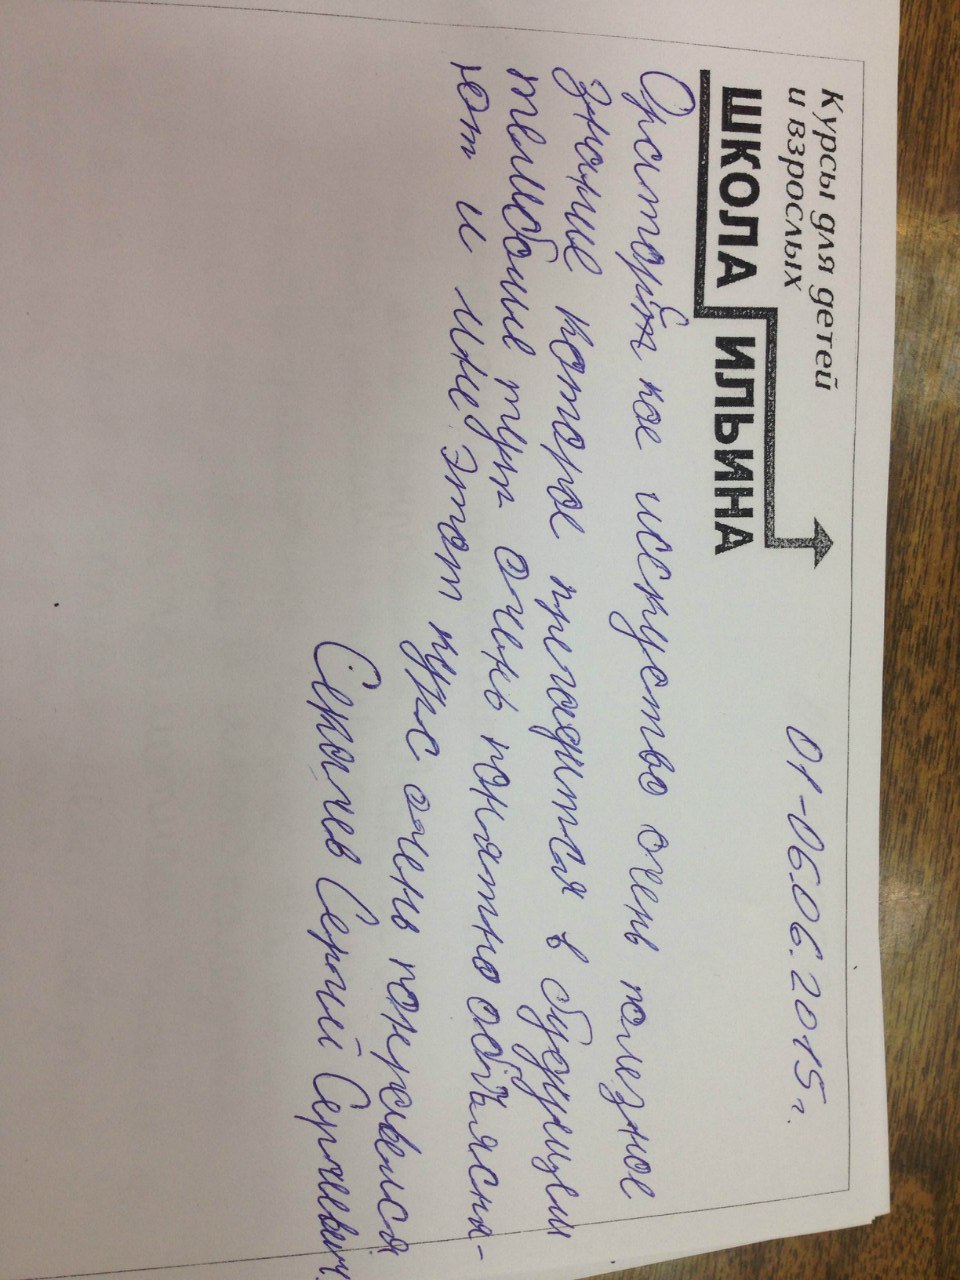 Курсы для детей
и взрослых
ШКОЛА ИЛЬИНА
01-06.06.2015г.
Ораторское искуство очень полезное
знание которое прегодится в будующем
тем более тут очень понятно обьясня-
ют и мне этот курс очень понравился
Сергей Сергеевич.